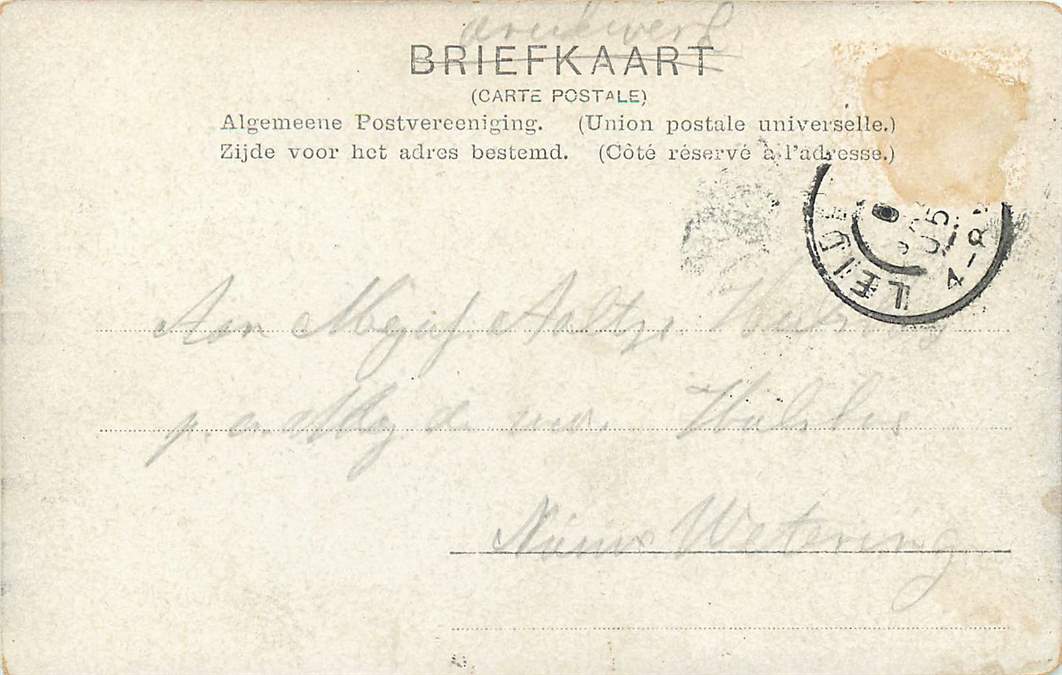 drukwerk
BRIEFKAART
(CARTE POSTALE)
Algemeene Postvereeniging. (Union postale universelle.)
Zijde voor het adres bestemd. (Côté réservé à l'adresse.)
LEID
05
4-8
Aan Mejuf. Aaltje
p. a. de
Nieuw Wetering